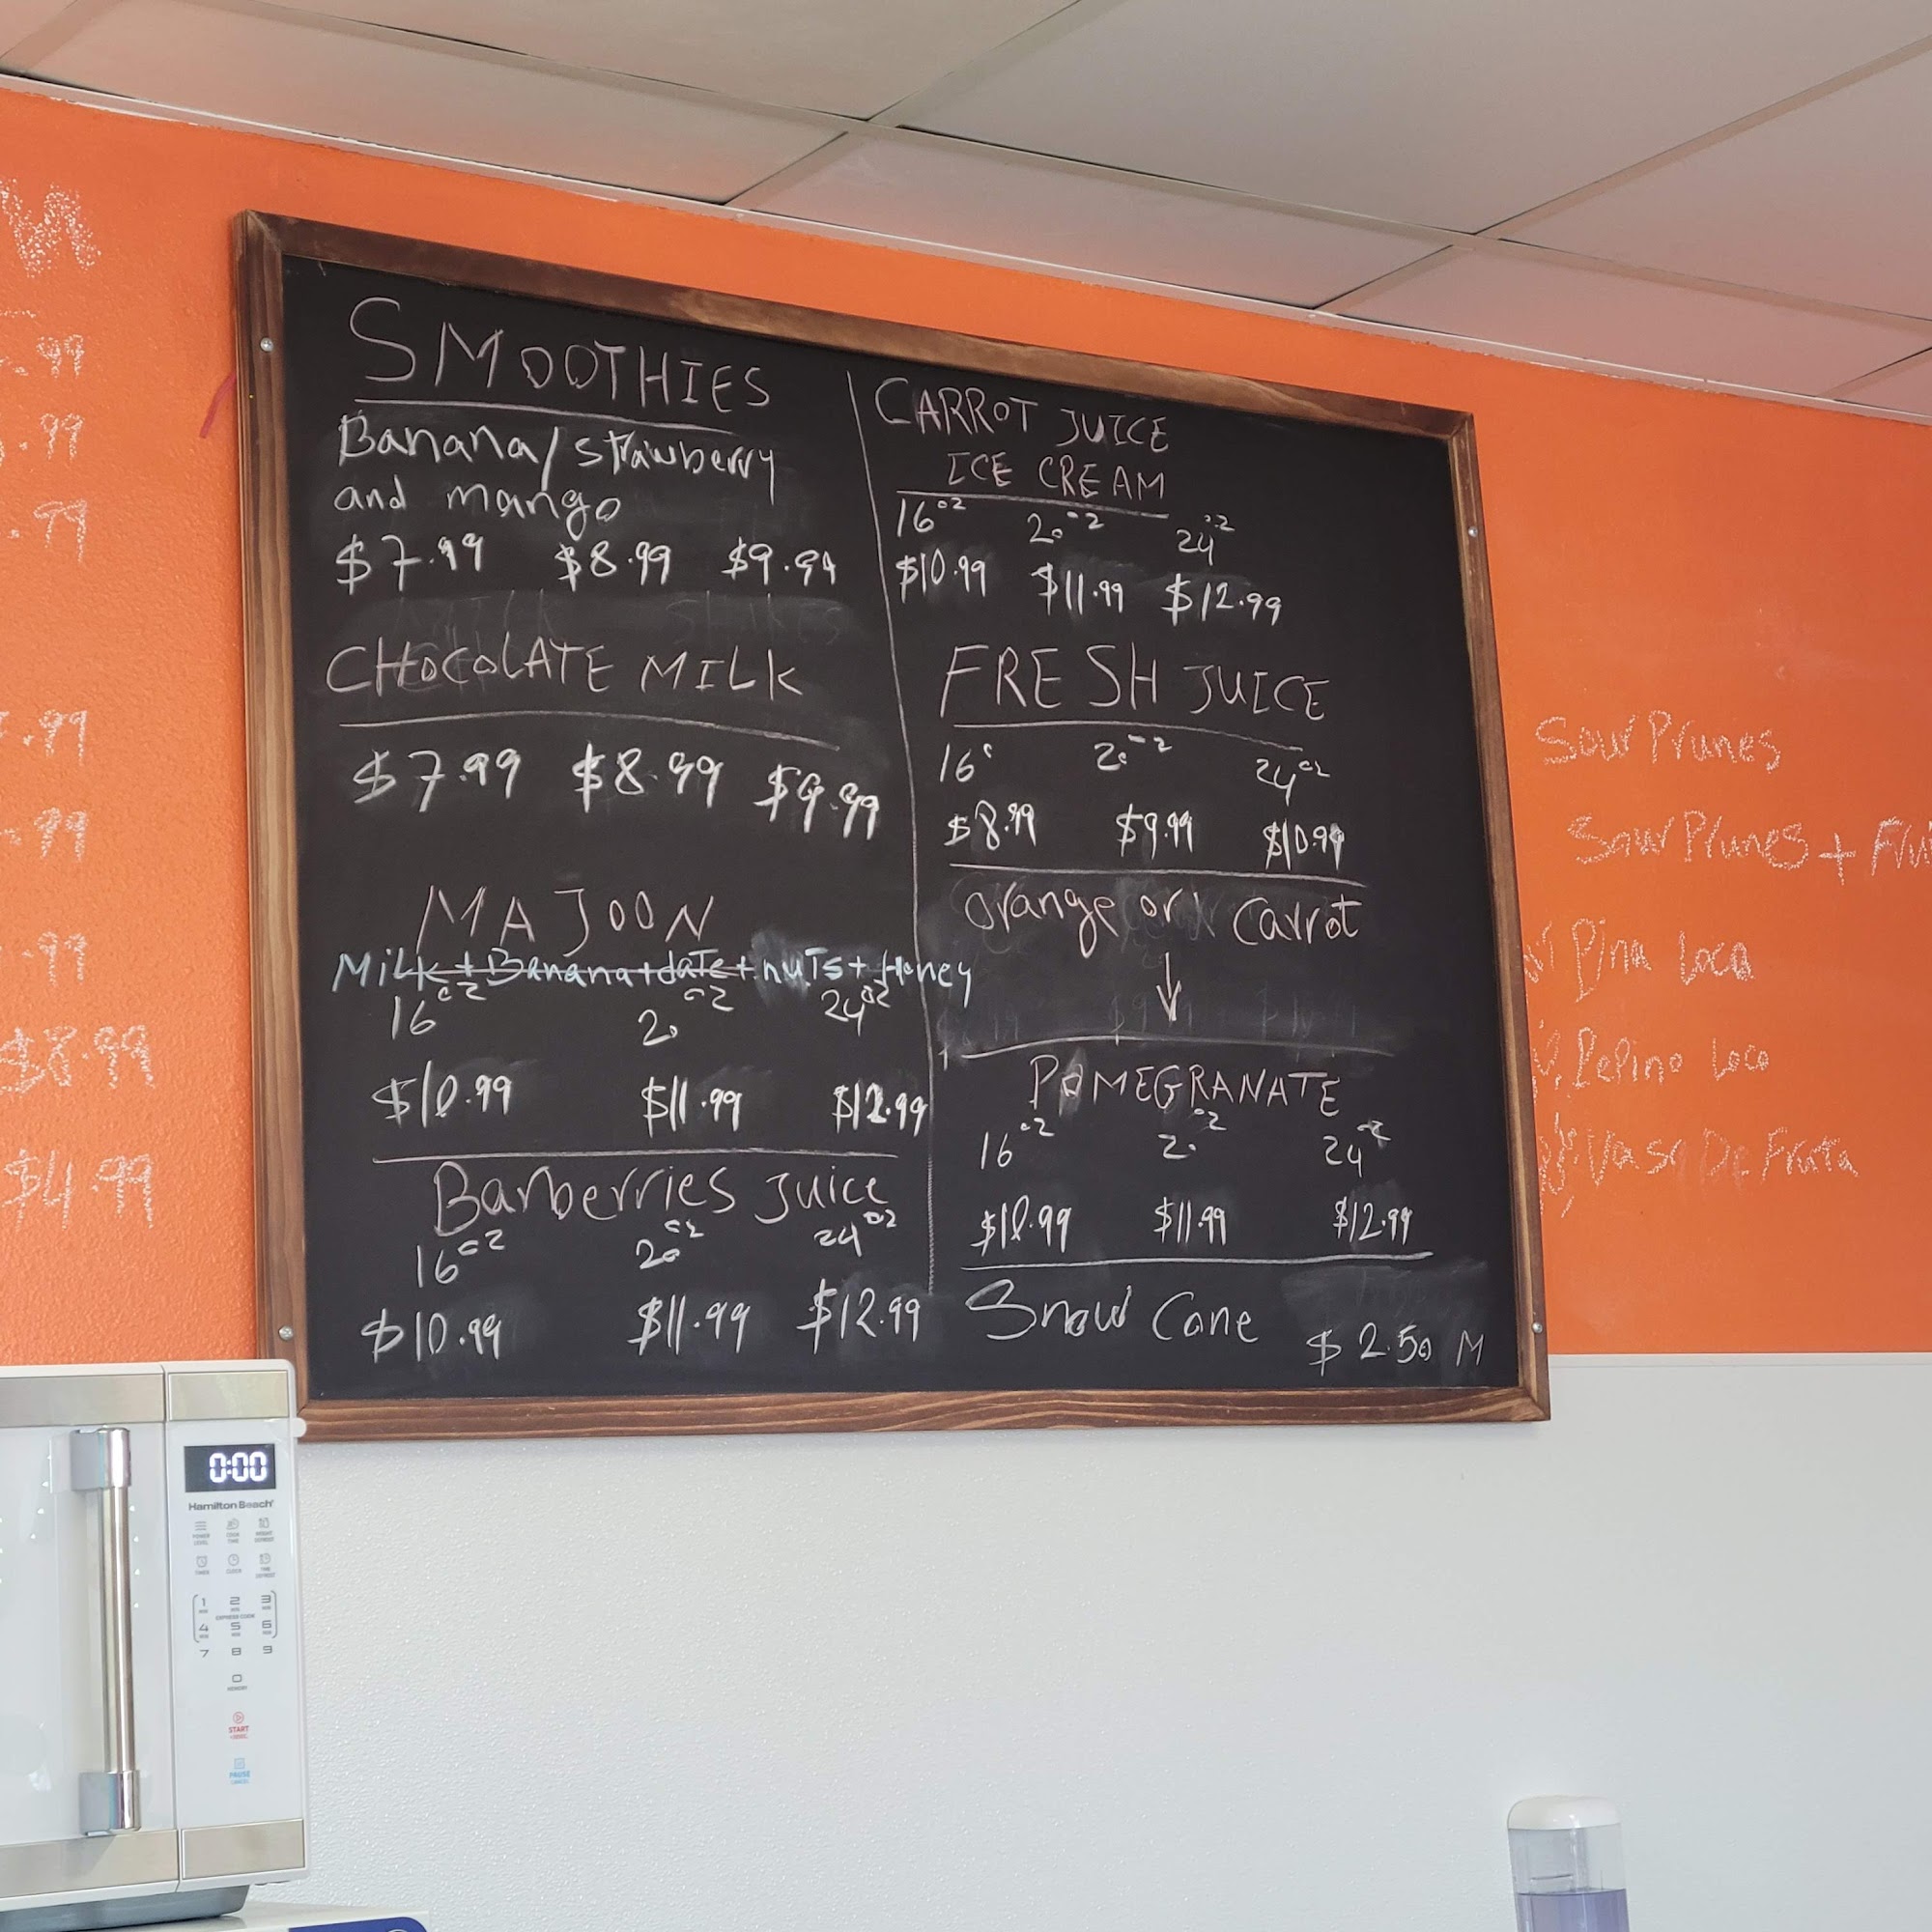 .99
.99
.99
.99
.99
.99
$8.99
$4.99
SMOOTHIES
Banana/strawberry
and mango
$7.99 $8.99 $9.99
CHOCOLATE MILK
$7.99 $8.99 $9.99
MAJOON
Milk+Banana+date+nuTs+Honey
16oz 20oz 24oz
$10.99 $11.99 $12.99
Barberries Juice
16oz 20oz 24oz
$10.99 $11.99 $12.99
CARROT JUICE
ICE CREAM
16oz 20oz 24oz
$10.99 $11.99 $12.99
FRESH JUICE
16o 20oz 24oz
$8.99 $9.99 $10.99
Orange or Carrot
POMEGRANATE
16oz 20oz 24oz
$10.99 $11.99 $12.99
Snow Cone
$2.50 M
Sour Prunes
Sour Prunes +
Pina Loca
Pepino Loco
Vaso De Fruta
0:00
Hamilton Beach
POWER LEVEL
COOK TIME
WEIGHT DEFROST
TIMER
CLOCK
TIME DEFROST
1 2 3
EXPRESS COOK
4 5 6
7 8 9
0
MEMORY
START
PAUSE
CANCEL